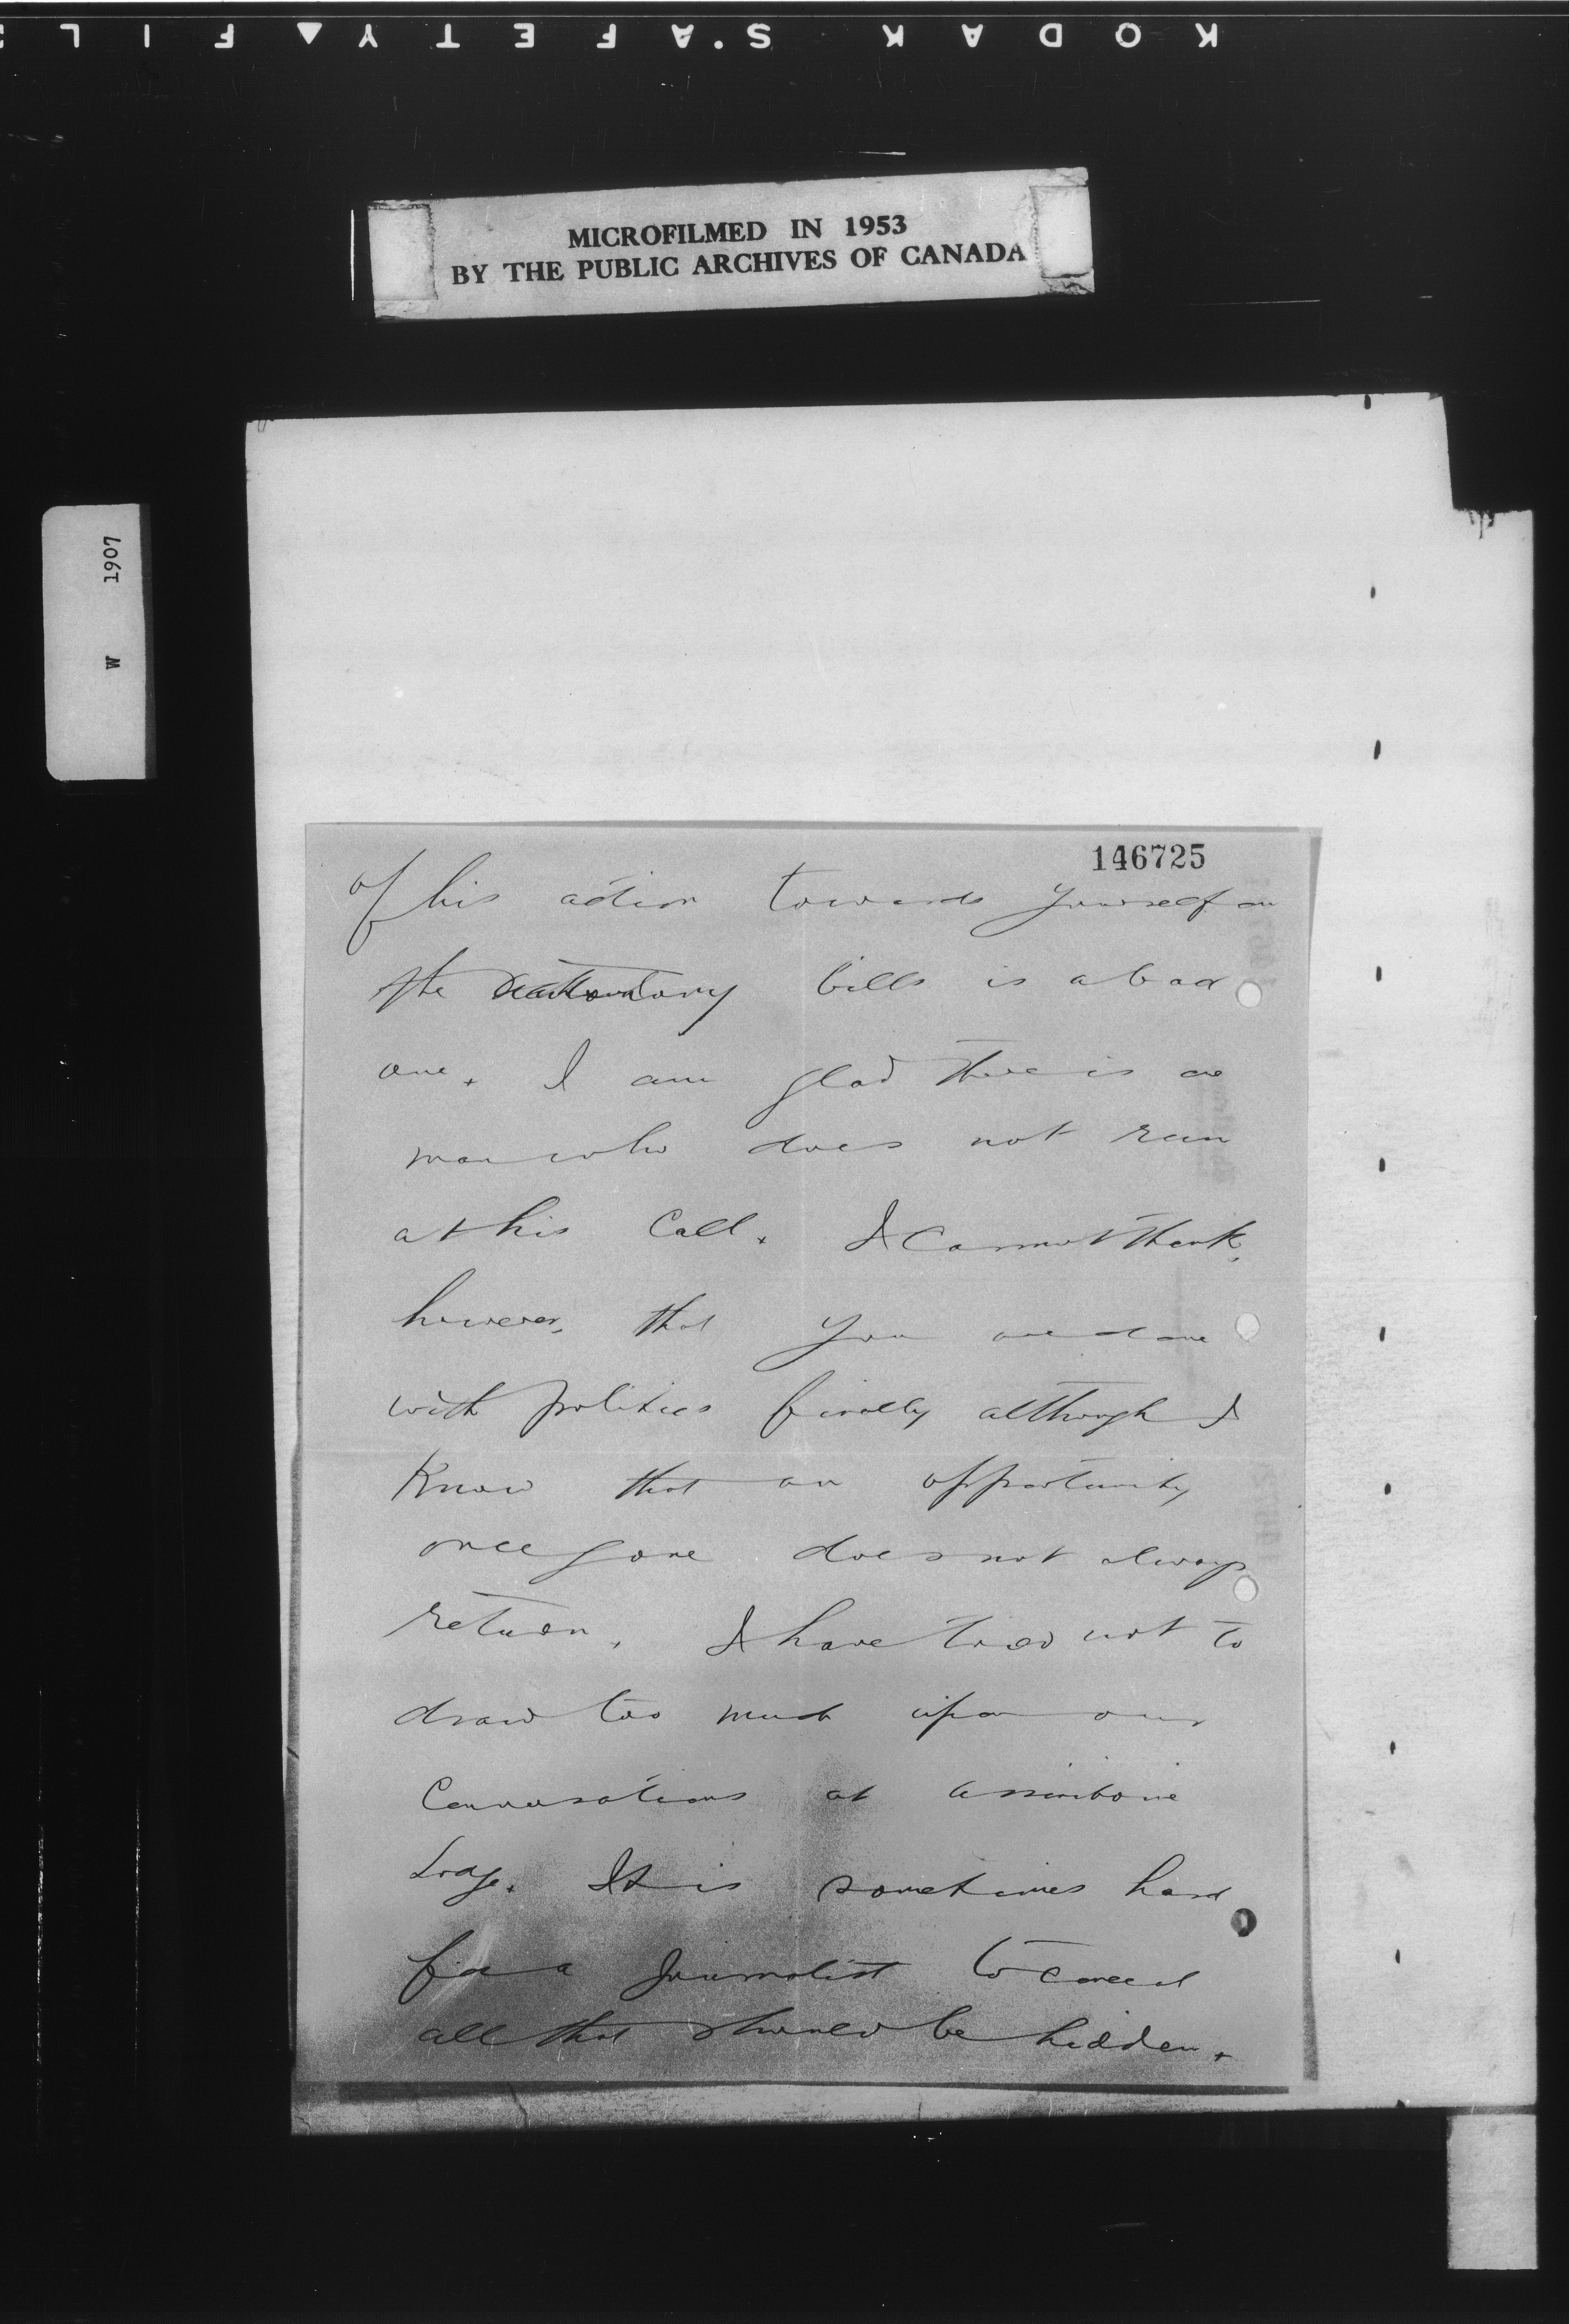 KODAK S'AFETY▲FIL
MICROFILMED IN 1953
BY THE PUBLIC ARCHIVES OF CANADA
W 1907
146725
of his action towards yourself on
the bills is a bad
one. I am glad there is one
man who does not run
at his call. I cannot think,
however, that you are done
with politics finally although I
know that an opportunity
once gone does not always
return. I have tried not to
draw too much upon our
Conversations at Assiniboine
Lodge. It is sometimes hard
for a journalist to conceal
all that should be hidden.